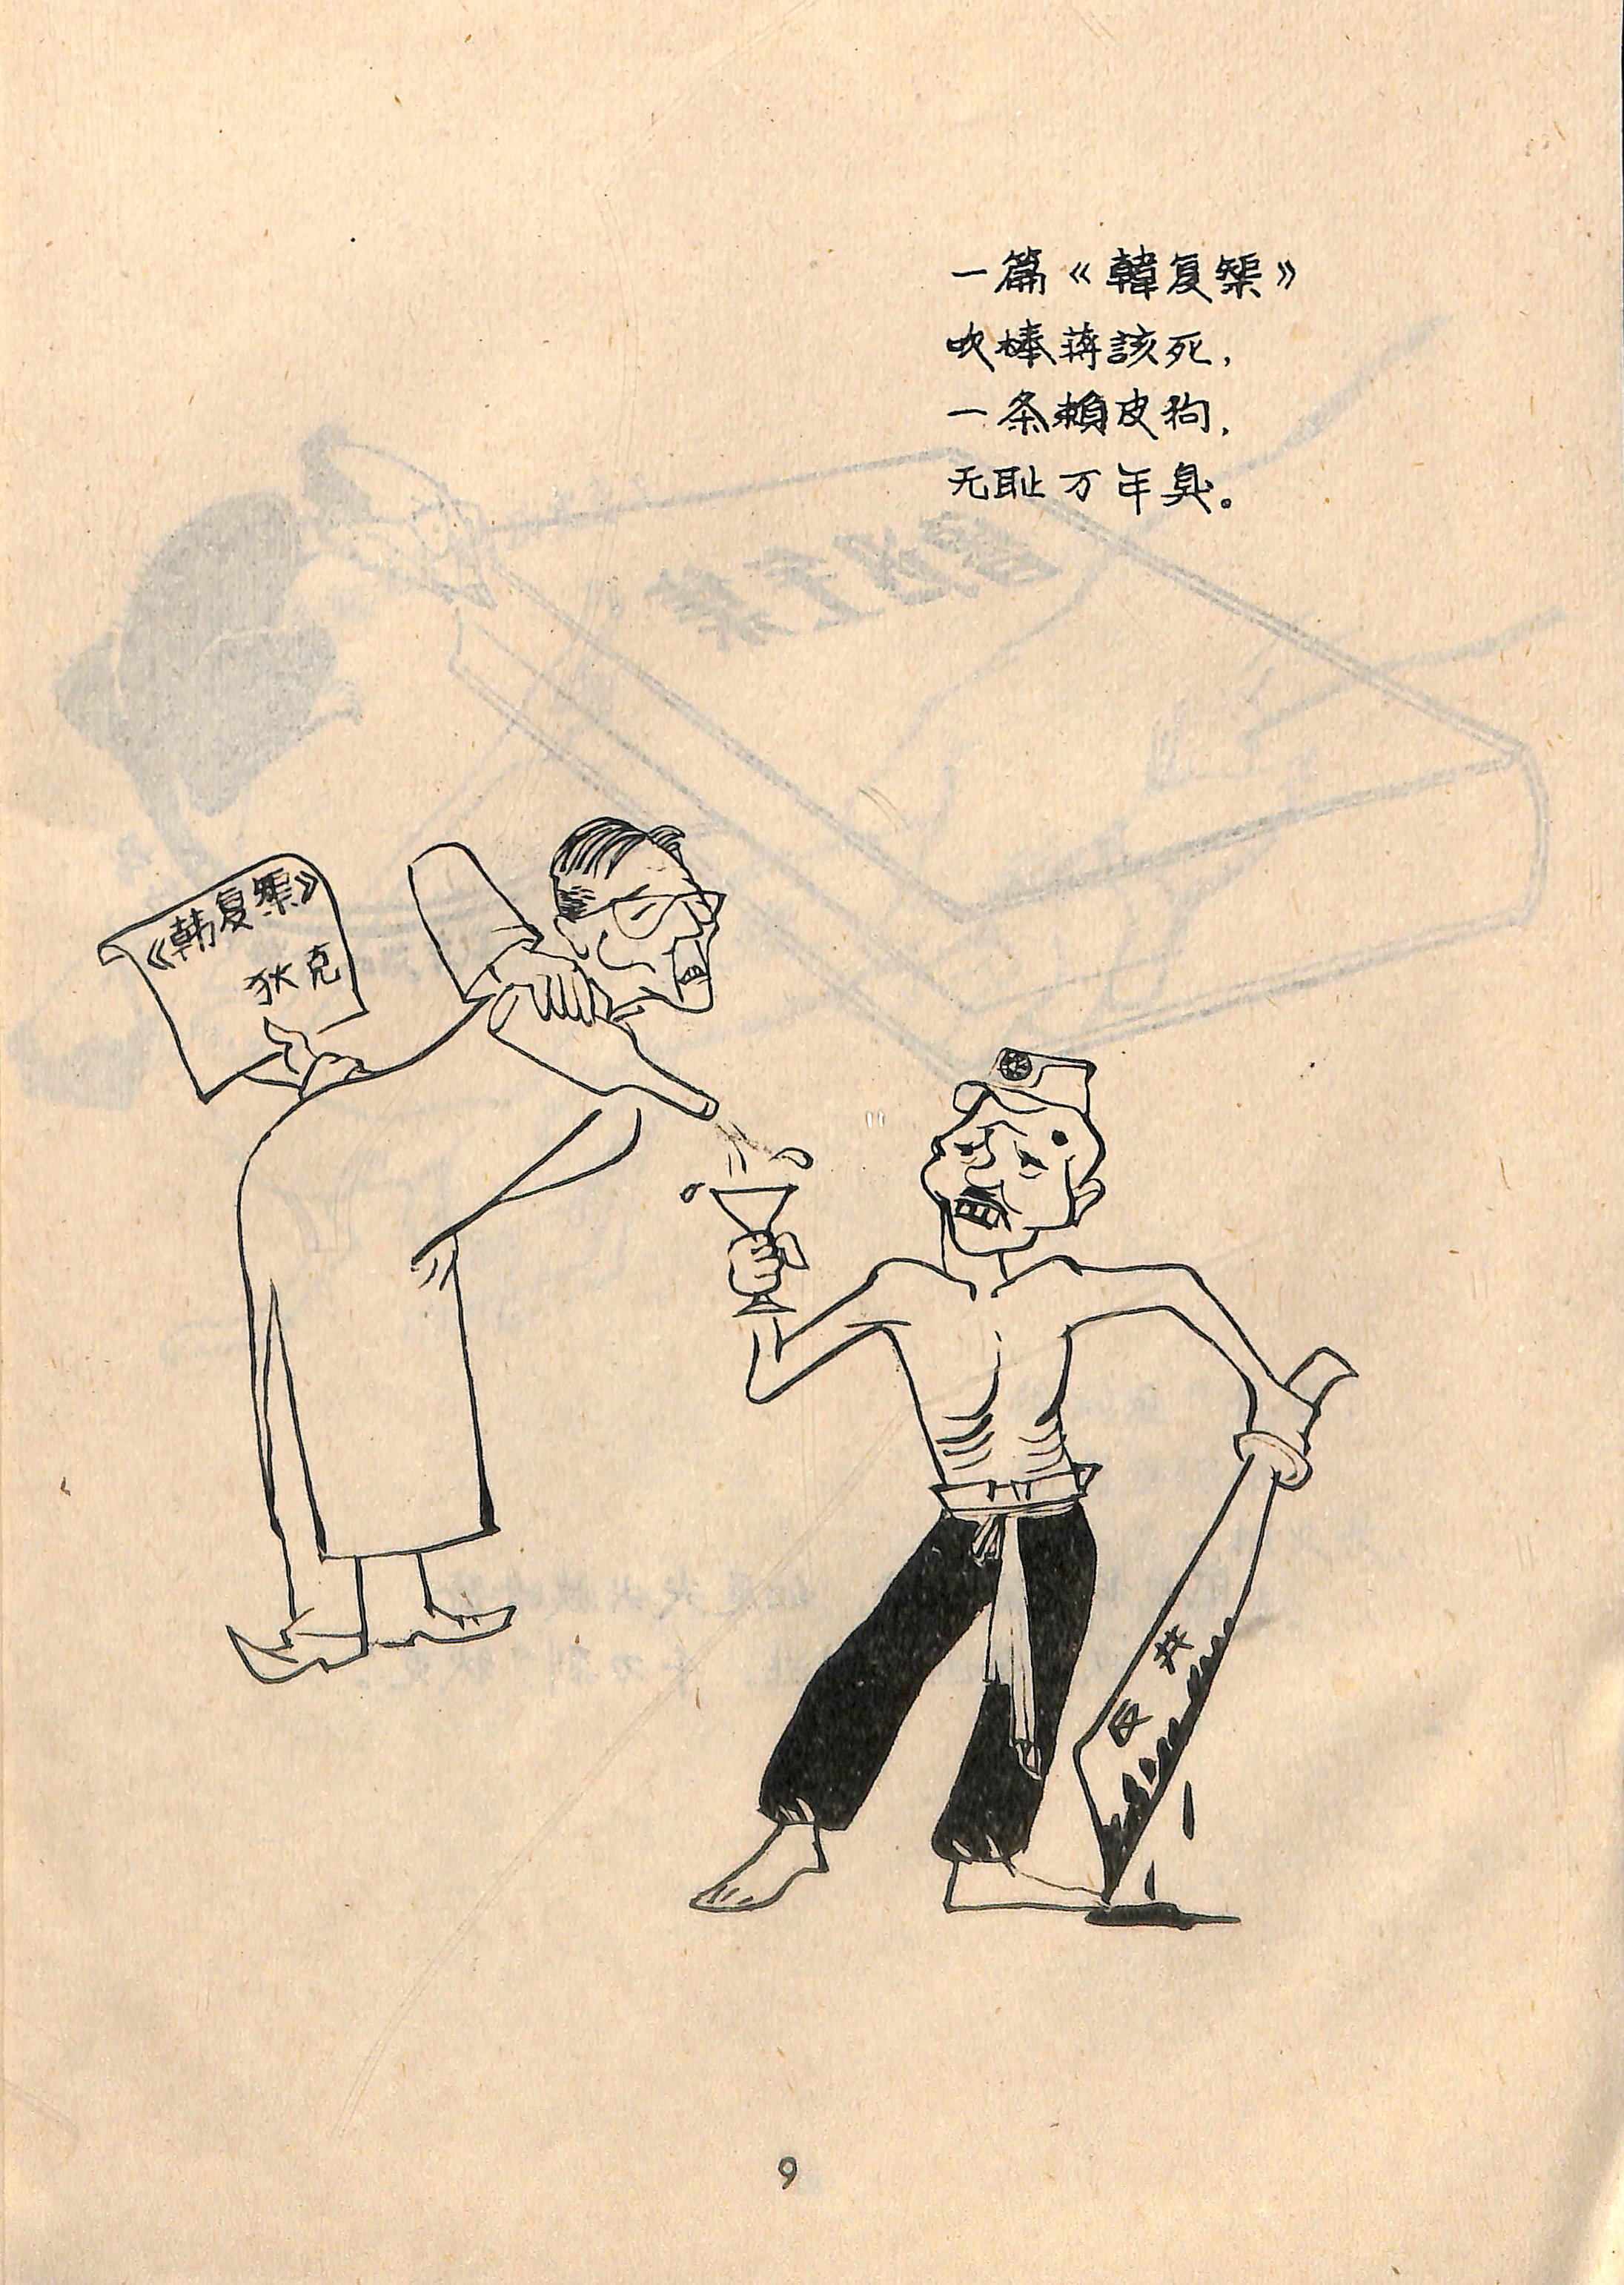 一篇《韓复榘》
吹棒蒋該死，
一条賴皮狗，
无耻万年臭。
《韩复榘》
狄克
反共
9